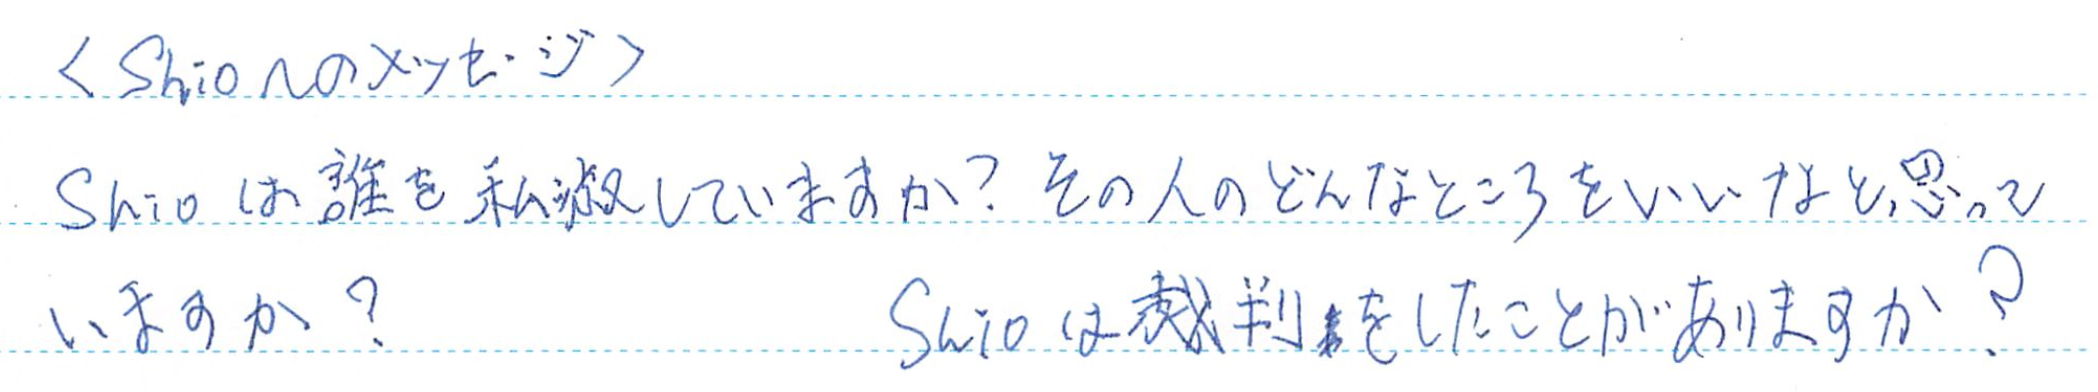 <Shioへのメッセージ>
Shioは誰を私淑していますか?その人のどんなところをいいなと思って
いますか? Shioは裁判をしたことがありますか?